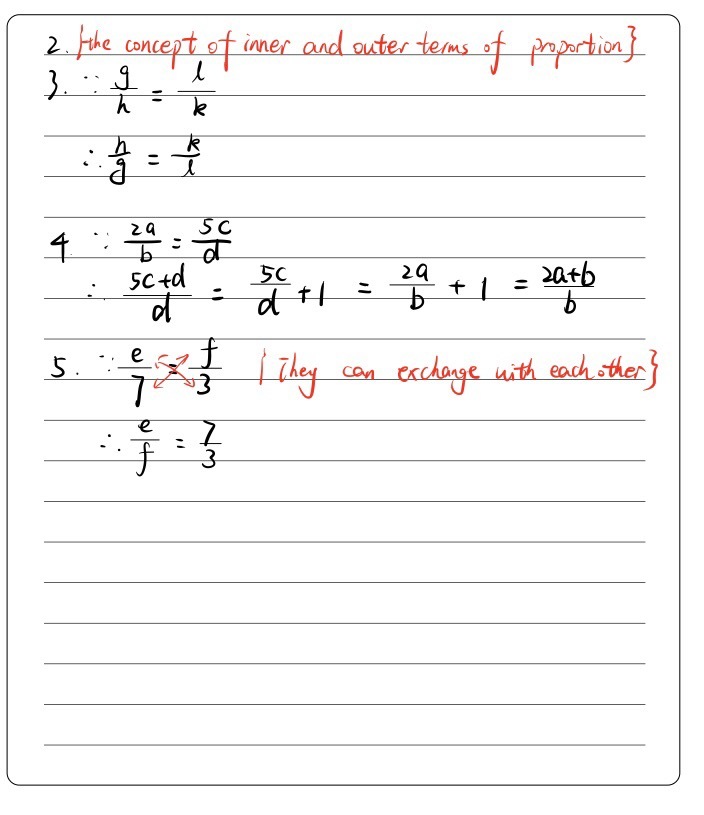 2. {the concept of inner and outer terms of proportion}
3. ∵ g/h = l/k
∴ h/g = k/l
4 ∵ 2a/b = 5c/d
∴ 5c+d/d = 5c/d + 1 = 2a/b + 1 = 2a+b/b
5. ∵ e/7 = f/3 {They can exchange with each other}
∴ e/f = 7/3